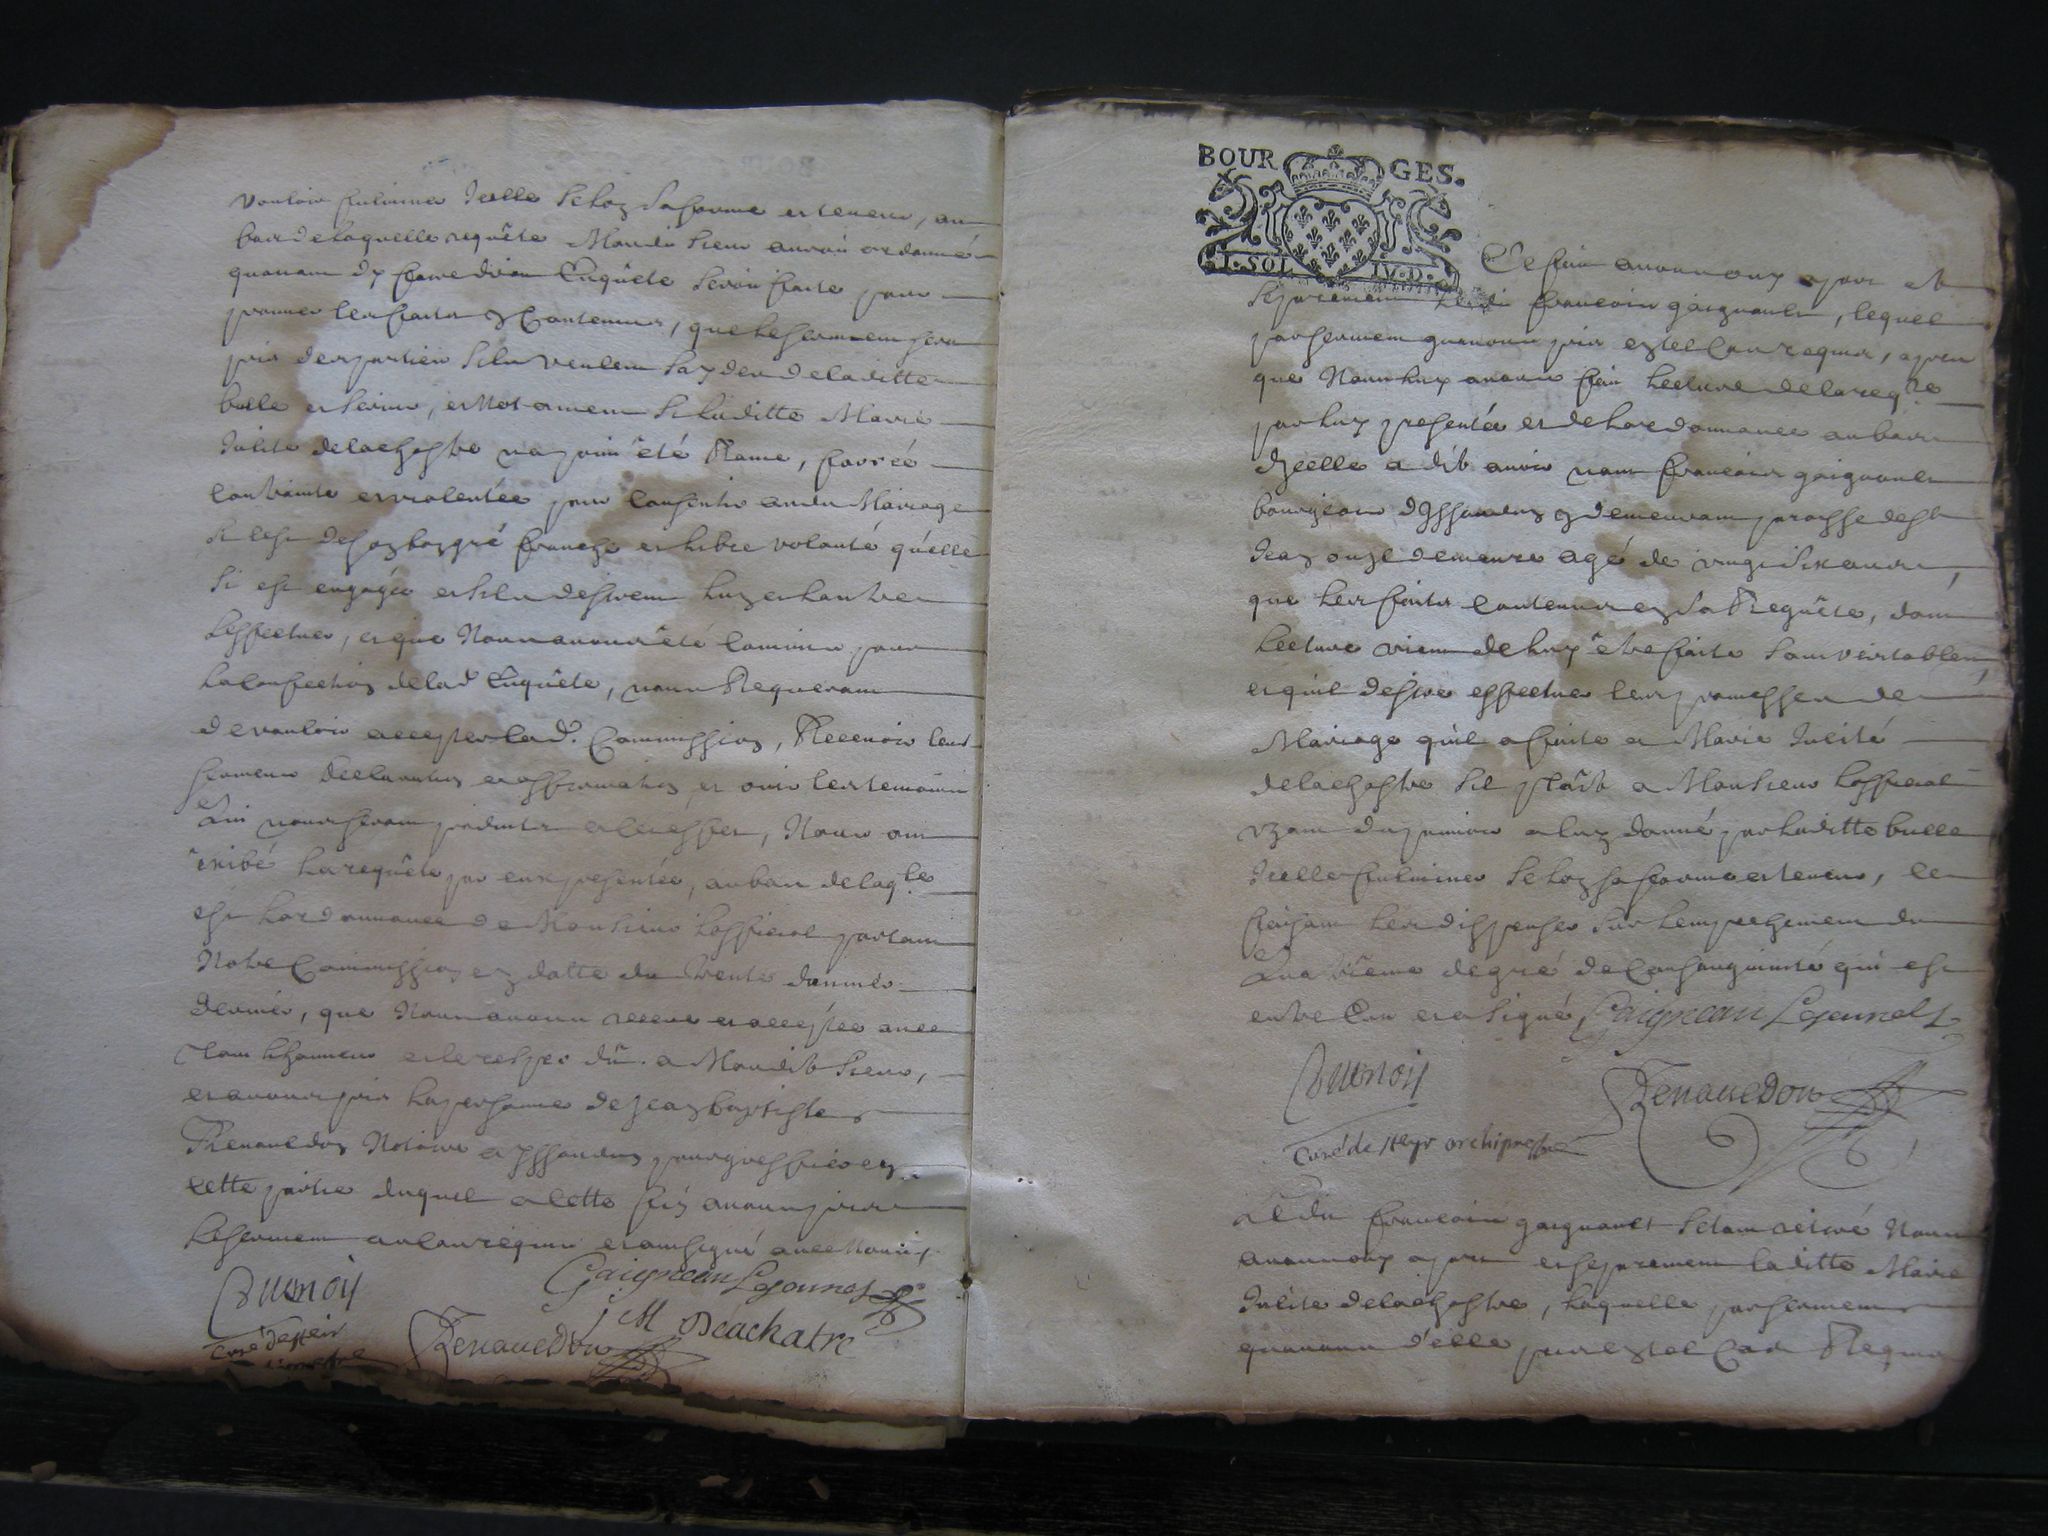 vouloir fulminer Icelle Selon Sa forme et teneur, au
bas de laquelle requête Mondit Sieur auroit ordonné
quavant dy faire droit Enquête Seroit faite pour
prouver les faits y Contenus, que le serment sera
pris des parties Sils veulent Sayder de laditte
bulle et Servir, et Notament Si laditte Marie
Julite delachastre na point été Ravie, forcée
Contrainte et violentée pour Consentir audit Mariage
Si Cest de son bon gré franche et libre volonté quelle
Si est engagée et Sils desirent lun et lautre
leffectuer, et que Nous avons été Commis pour
la Confection de lad. Enquête, nous Requerant
de vouloir accepter lad. Commission, Recevoir leur
serment Declaration et affirmation et ouir les temoins
Qui nous seront produits et a cet effet, Nous ont
exibé la requête par eux presentée, au bas de laqle
est lordonnance de Monsieur lofficial portant
Notre Commission en datte du Trente
dernier, que Nous avons receue et acceptée avec
Tout lhonneur et le respec dû a Mondit Sieur,
et avons pris la personne de Jean baptiste
Renauedon Notaire a Issoudun pour greffier en
cette partie duquel a cette fin avons pris
le serment au Cas requis et ont signé avec Nous
Gaigneau Lejeune
M Delachatre
Renauedon
BOURGES.
IV. D.
Ce fait avons ouy a part et
Separement Ledit francois gaignault, lequel
par serment quavons pris en tel Cas requis, apres
que Nous luy avons fait Lecture de la reqte
par luy presentée et de lordonnance au bas
dycelle a dit avoir nom francois gaignault
bourgeois dIssoudun y demeurant paroisse de St
Jean ouil demeure agé de vingt Six ans,
que les faits Contenus en Sa Requête, dont
Lecture vient de luy être faite Sont veritables
et quil desire effectuer les promesses de
Mariage quil a faite a Marie Julité
delachastre Sil plaît a Monsieur lofficial
uzant du pouvoir a luy donné par laditte bulle
Icelle fulminer Selon sa forme et teneur, ce
faisant les dispenser Sur lempechement du
Quatrieme degré de Consanguinité qui est
entre Eux et a Signé Gaigneau Lejeune
Renauedon
Curé de archiprestre
Ledit francois gaignault Setant retiré Nous
avons ouy a part et separement laditte Marie
Julite delachastre, laquelle par serment
quavons delle pris en tel Cas Requis